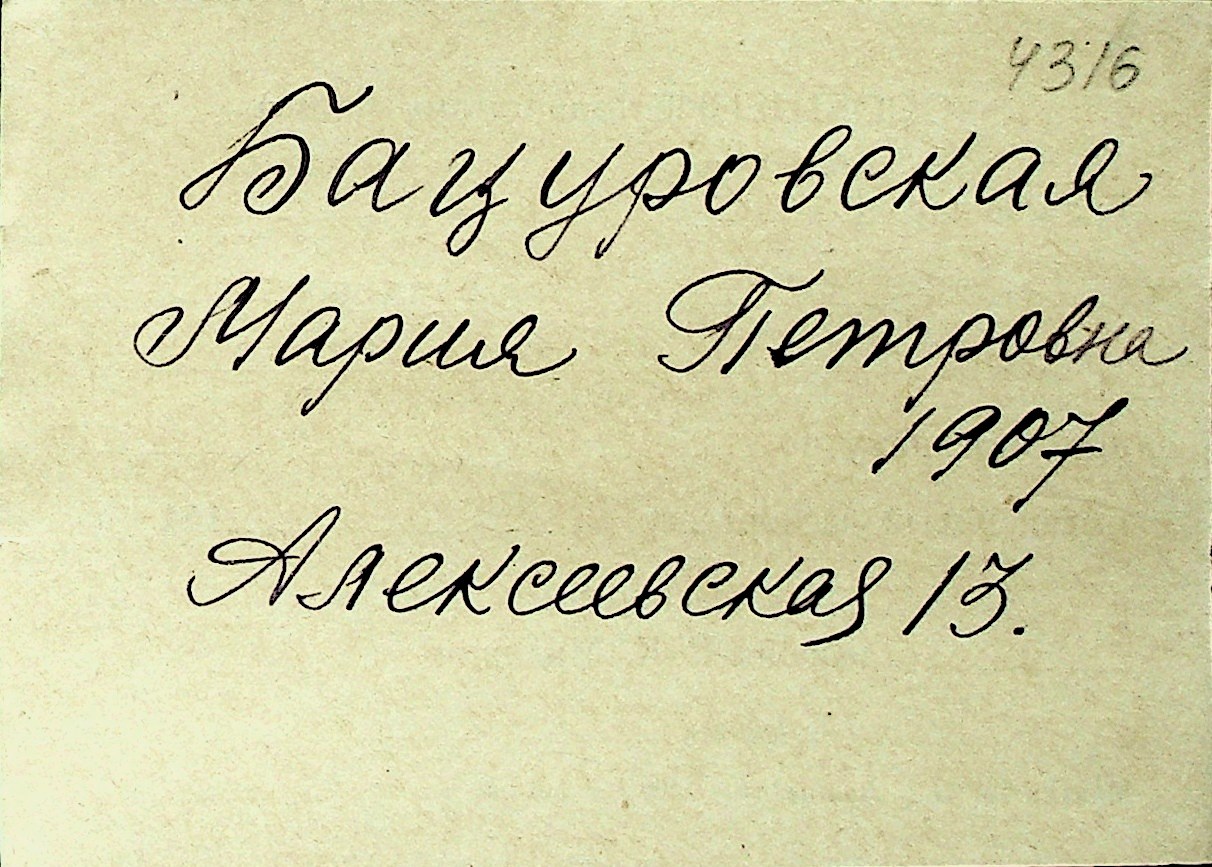 4316
Бацуровская
Мария Петровна
1907
Алексеевская 13.